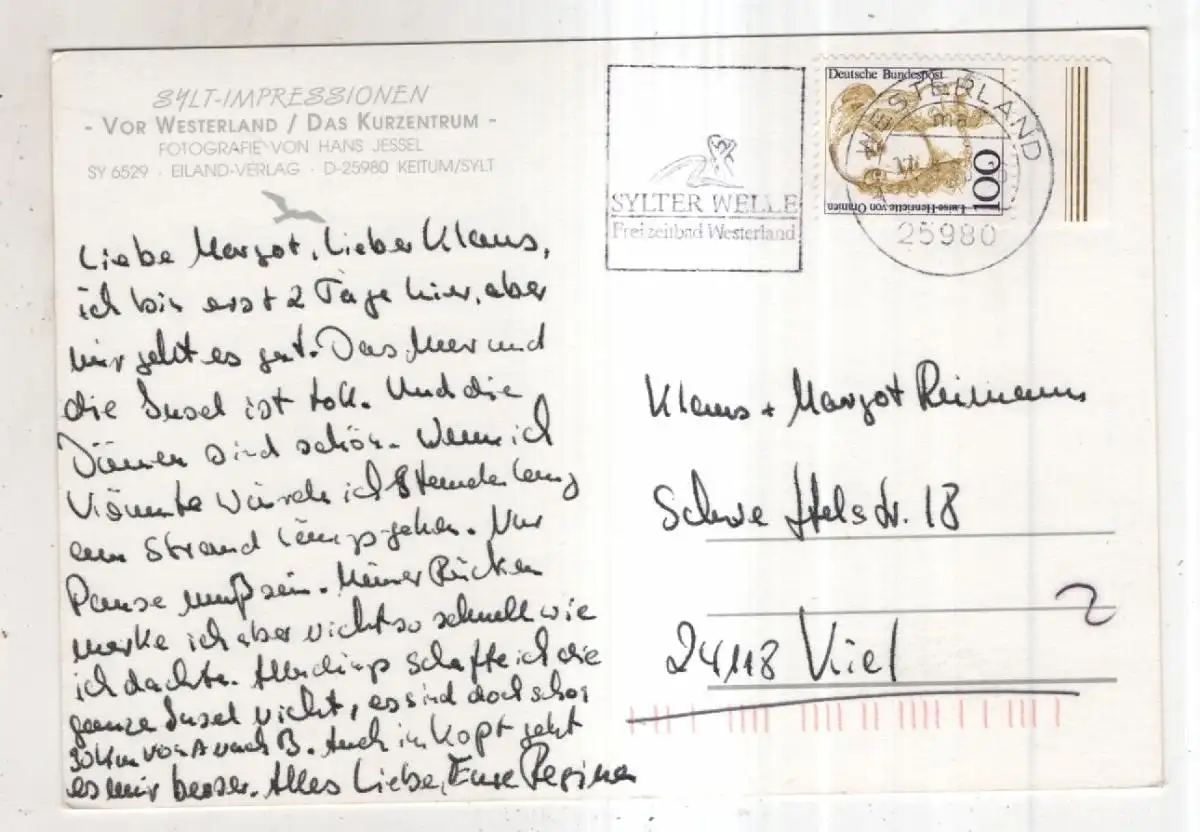 SYLT-IMPRESSIONEN
- VOR WESTERLAND / DAS KURZENTRUM -
FOTOGRAFIE VON HANS JESSEL
SY 6529 · EILAND-VERLAG · D-25980 KEITUM/SYLT
Liebe Margot, lieber Klaus,
ich bin erst 2 Tage hier, aber
mir geht es gut. Das Meer und
die Insel ist toll. Und die
sind schön. Wenn ich
könnte würde ich 8 Stunden lang
am Strand langgehen. Nur
Pause muß sein. Meinen Rücken
merke ich aber nicht so schnell wie
ich dachte. Allerdings schaffe ich die
ganze Insel nicht, es sind doch schon
30 km von A nach B. Auch im Kopf geht
es mir besser. Alles Liebe, Eure Regina
SYLTER WELLE
Freizeitbad Westerland
Deutsche Bundespost
Luise Henriette von Oranien
100
WESTERLAND
ma
25980
Klaus + Margot Reimann
18
24118 Kiel
2